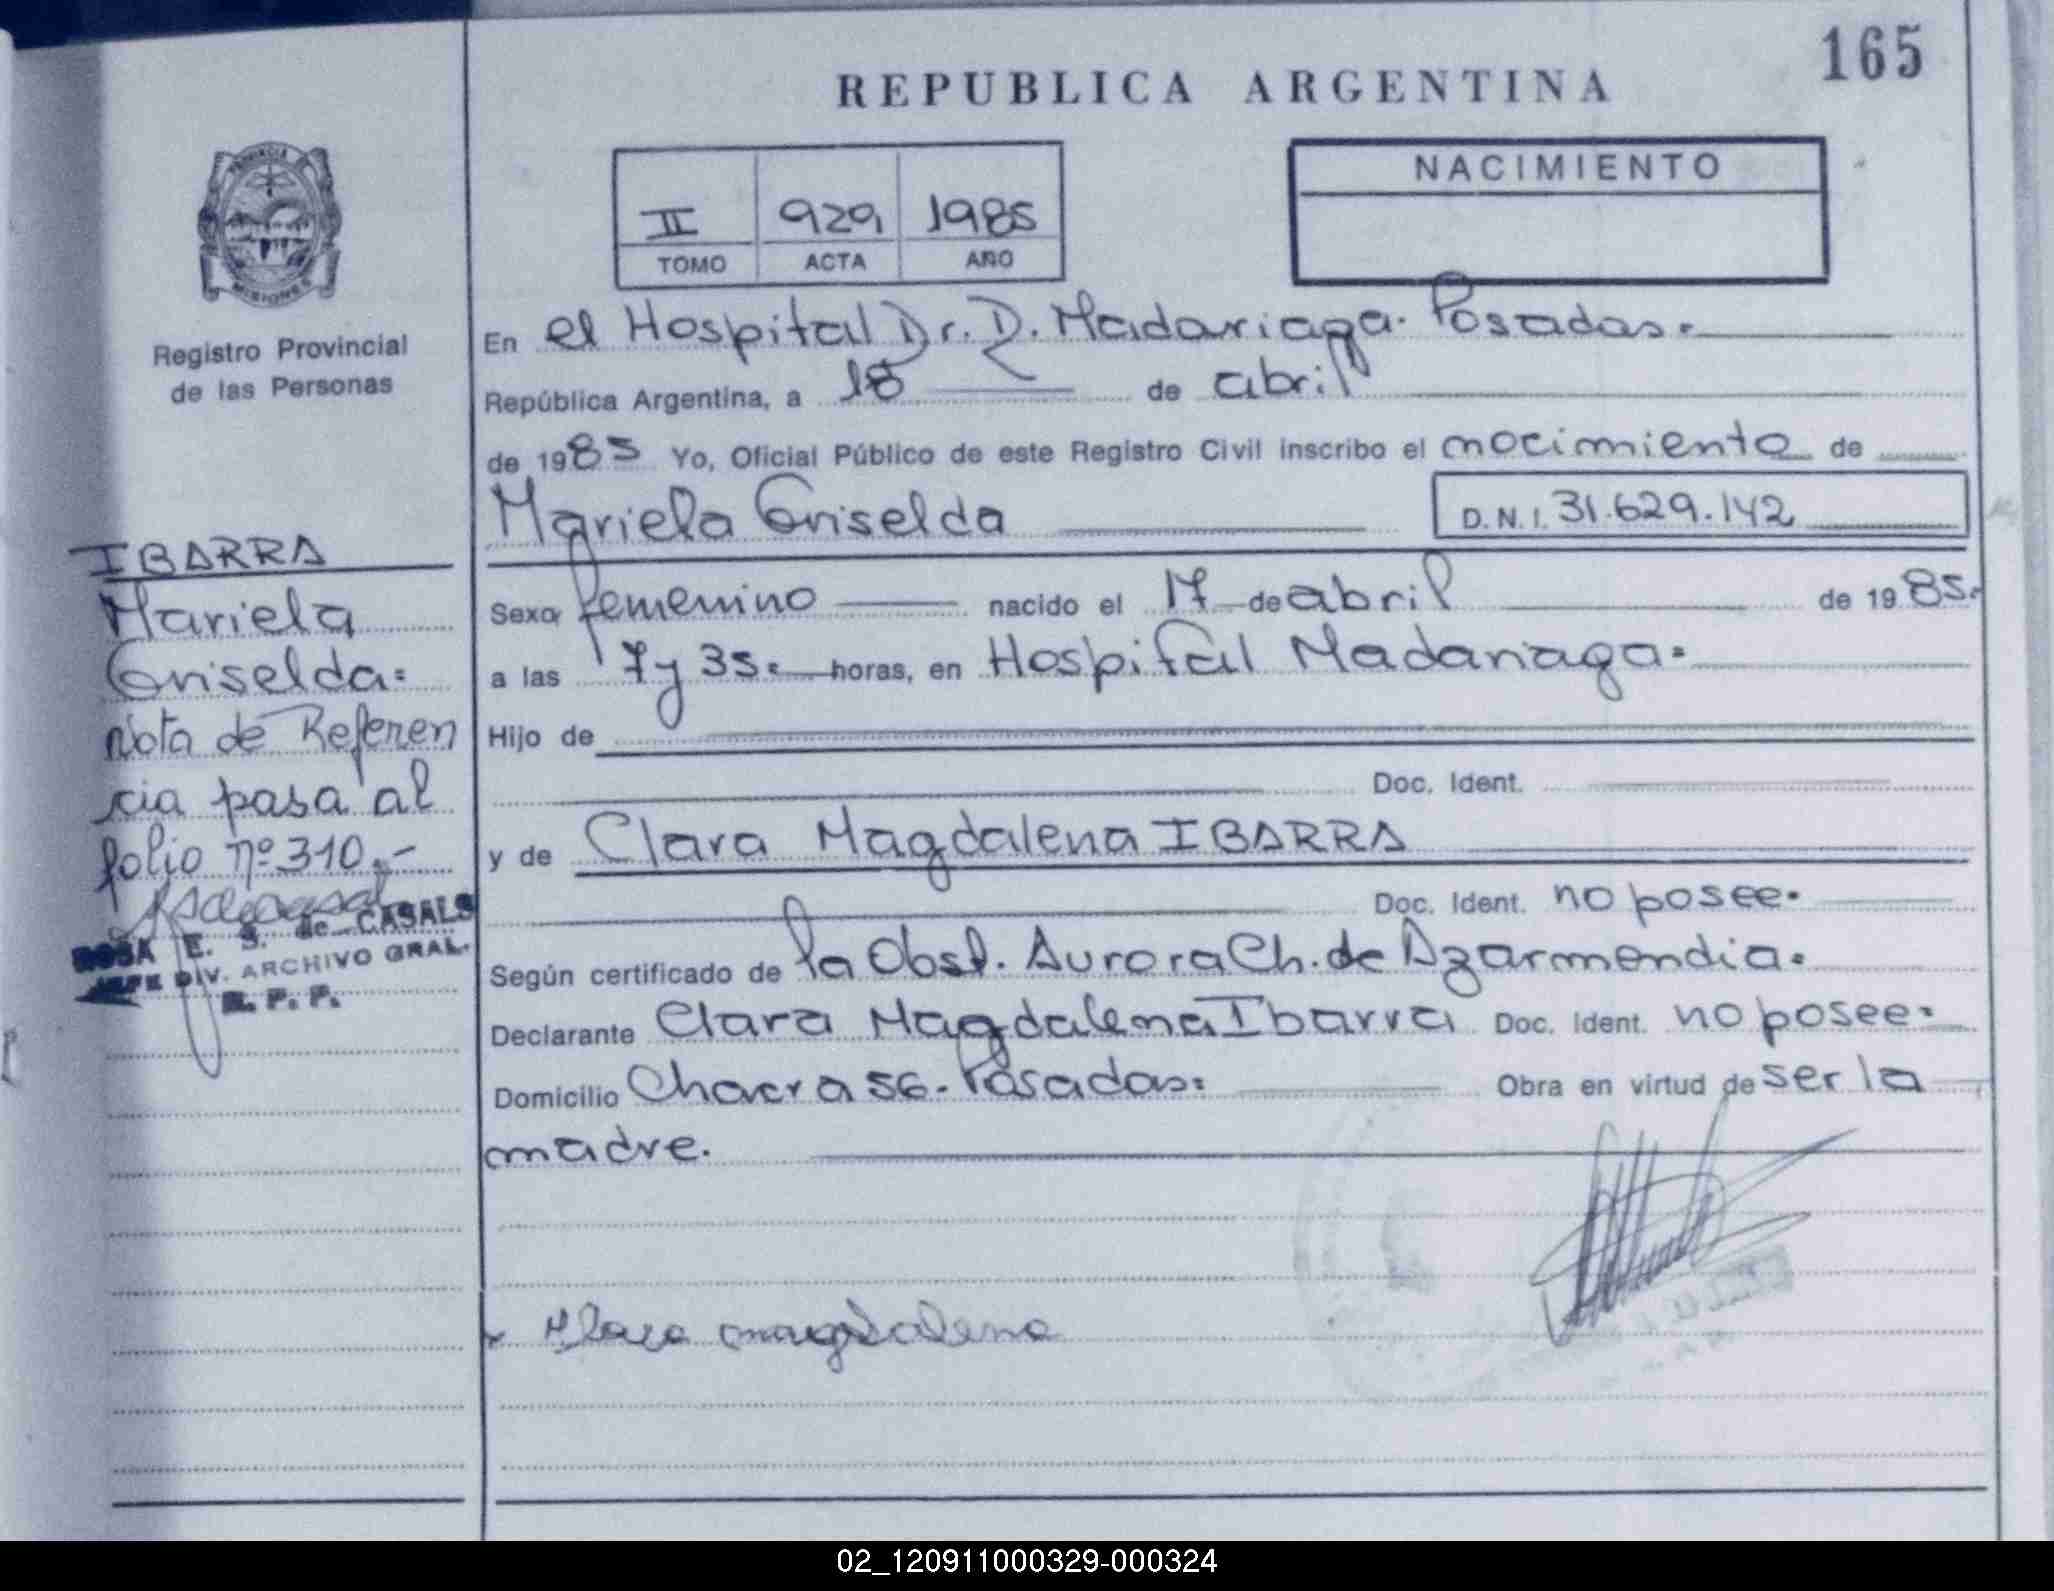 165
REPUBLICA ARGENTINA
PROVINCIA DE
MISIONES
Registro Provincial
de las Personas
II 929 1985
TOMO ACTA AÑO
NACIMIENTO
En el Hospital Dr. D. Madariaga. Posadas.
República Argentina, a 18 de abril
de 1985 Yo, Oficial Público de este Registro Civil inscribo el nacimiento de
Mariela Griselda D.N.I. 31.629.142
Sexo femenino nacido el 17 de abril de 1985.
a las 7 y 35. horas, en Hospital Madariaga.
Hijo de
Doc. Ident.
y de Clara Magdalena IBARRA
Doc. Ident. no posee.
Según certificado de la Obst. Aurora Ch. de Azarmendia.
Declarante Clara Magdalena Ibarra Doc. Ident. no posee.
Domicilio Chacra 56. Posadas. Obra en virtud de ser la
madre.
IBARRA
Mariela
Griselda.
Nota de Referen
cia pasa al
folio nº 310.-
ROSA E. S. de CASALS
JEFE DIV. ARCHIVO GRAL.
R. P. P.
magdalena
02_120911000329-000324